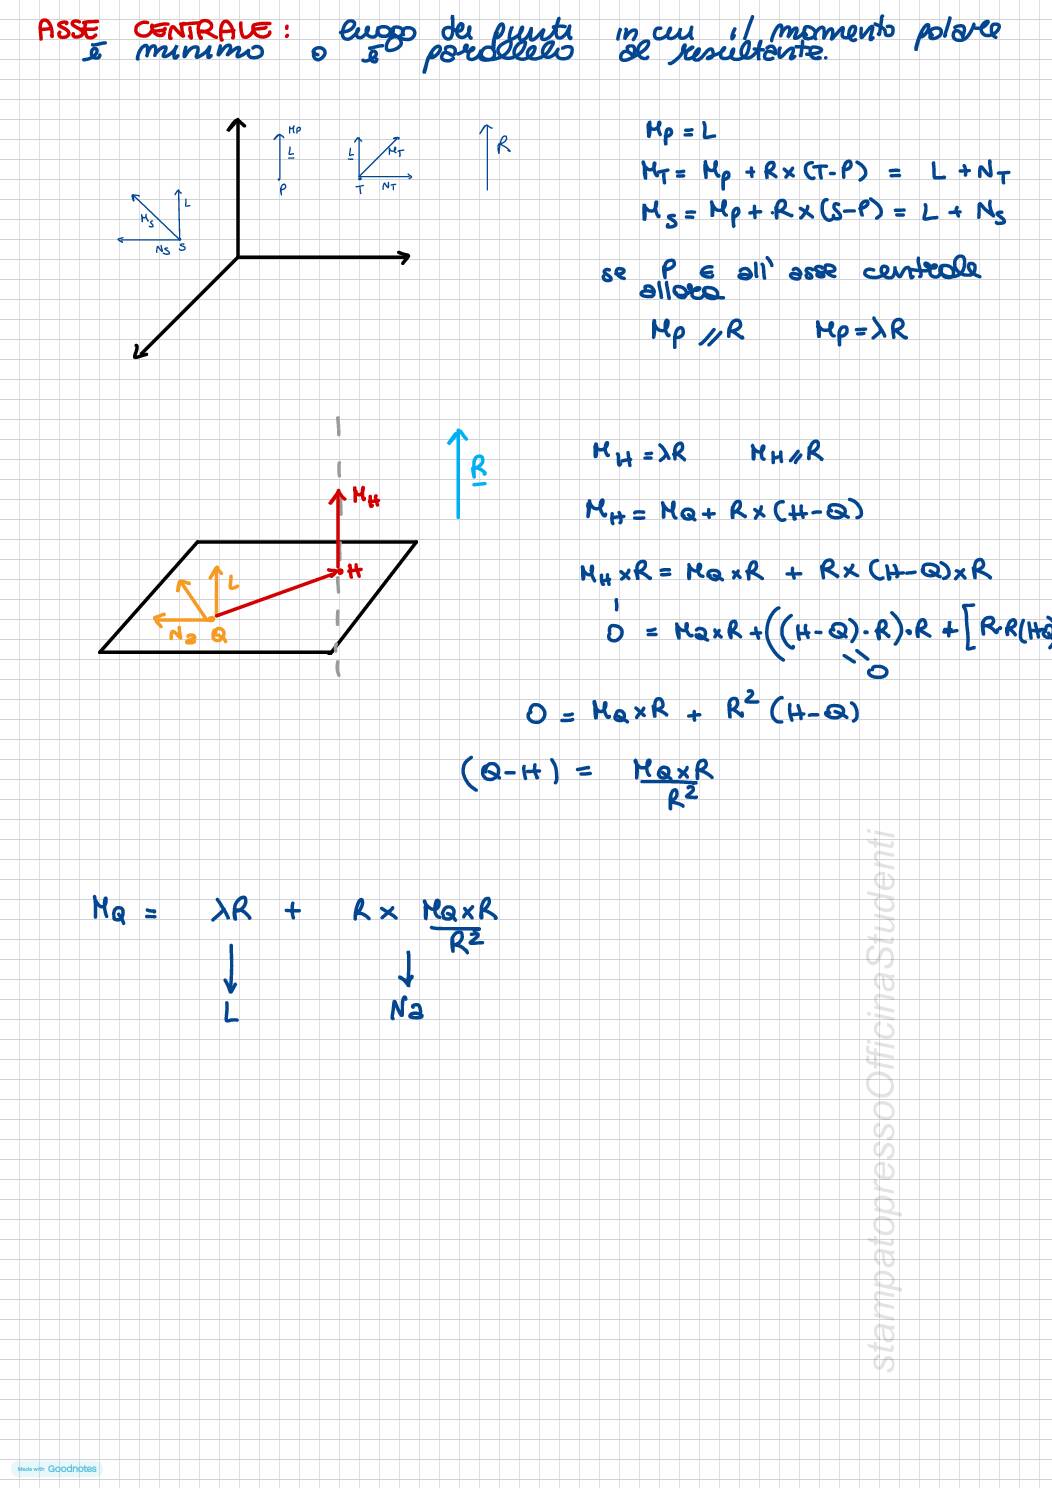 ASSE CENTRALE : luogo dei punti in cui il momento polare
è minimo o è parallelo al resultante.
Mp
L
P
L
MT
T
NT
R
L
Ms
Ns
S
Mp = L
MT = Mp + R x (T-P) = L + NT
Ms = Mp + R x (S-P) = L + Ns
se P ∈ all' asse centrale
allora
Mp // R Mp = λR
R
MH
H
L
Na
Q
MH = λR MH // R
MH = MQ + R x (H-Q)
MH x R = MQ x R + R x (H-Q) x R
0 = MQ x R + ((H-Q)·R)·R + [R·R(HQ
0
0 = MQ x R + R² (H-Q)
(Q-H) = MQ x R
R²
MQ = λR + R x MQ x R
R²
L Na
stampatopressoOfficinaStudenti
Made with Goodnotes